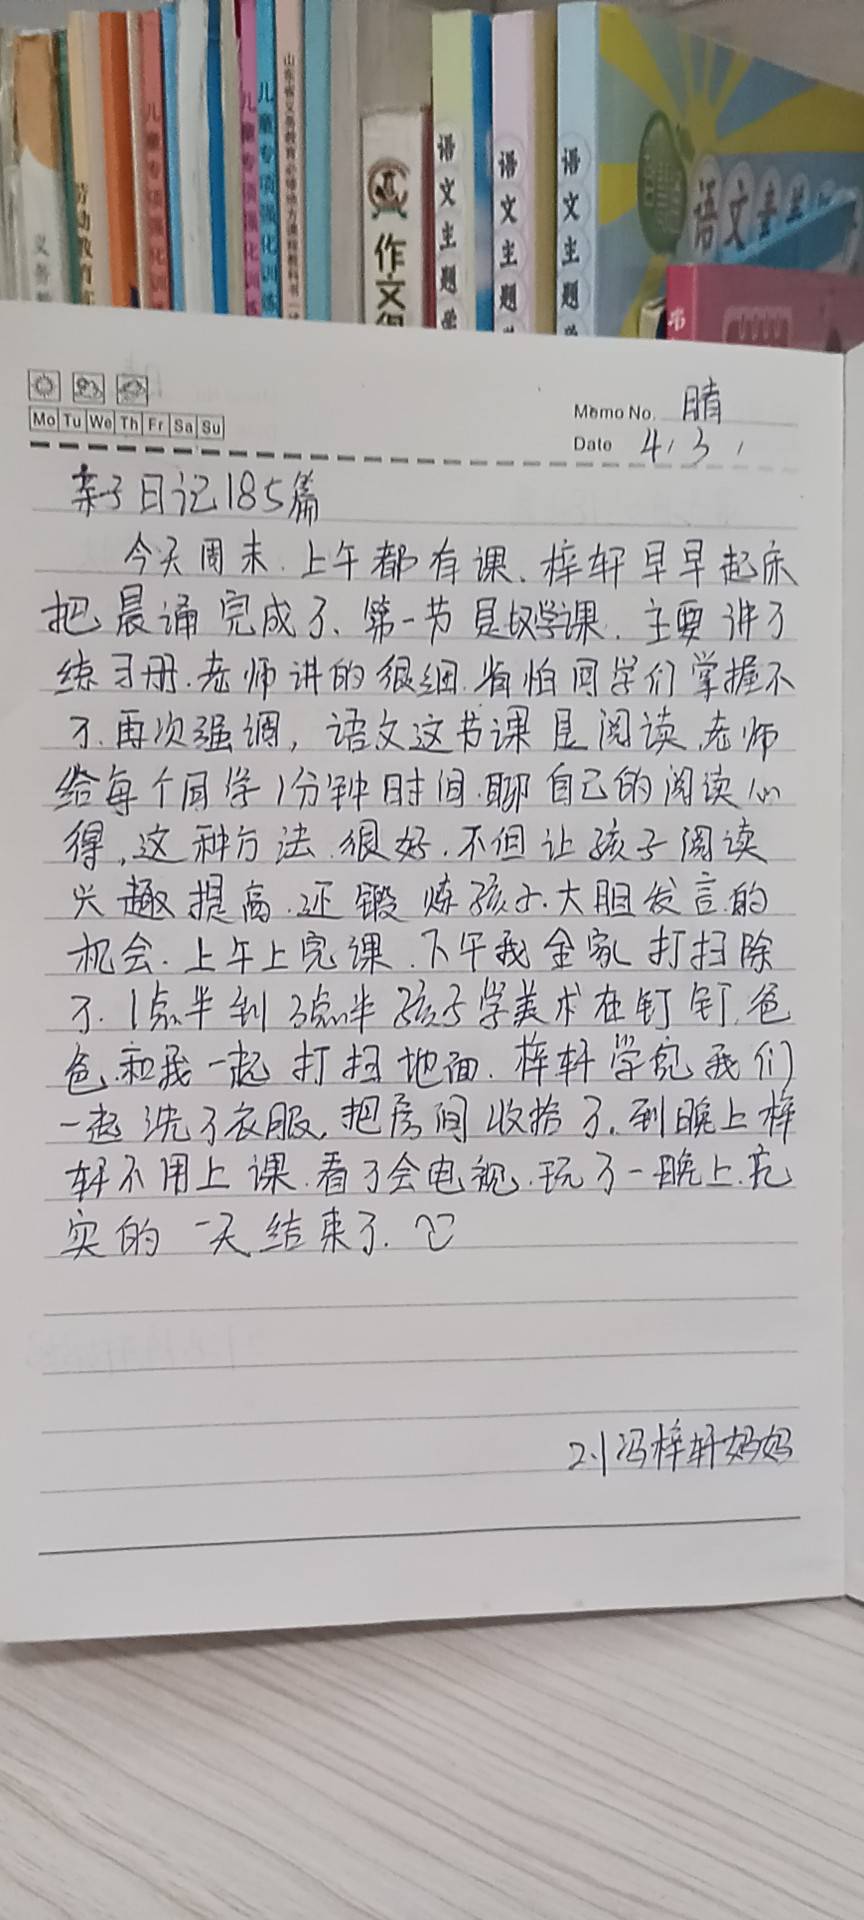 义务教
劳动教育实
儿童专项强化训练
儿童专项强化训练
儿童专项强化训练
山东省义务教育必修地方课程教科书
作文得
语文主题学
语文主题学
语文主题学
语文素养
Mo Tu We Th Fr Sa Su
Memo No. 晴
Date 4.3.
亲子日记185篇
今天周末.上午都有课、梓轩早早起床
把晨诵完成了、第一节是数学课.主要讲了
练习册.老师讲的很细.省怕同学们掌握不
了.再次强调,语文这节课是阅读.老师
给每个同学1分钟时间.聊自己的阅读心
得,这种方法.很好.不但让孩子阅读
兴趣提高.还锻炼孩子.大胆发言的
机会.上午上完课.下午我全家打扫除
了.1点半到3点半孩子学美术在钉钉.爸
爸和我一起打扫地面.梓轩学完我们
一起洗了衣服,把房间收拾了.到晚上梓
轩不用上课.看了会电视.玩了一晚上.充
实的一天结束了.
2.1冯梓轩妈妈